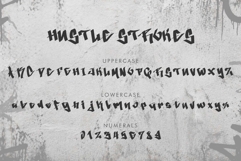 HUSTLE STROKES
UPPERCASE
ABCDEFGHIJKLMNOPQRSTUVWXYZ
LOWERCASE
abcdefghijklmnopqrstuvwxyz
NUMERALS
0123456789